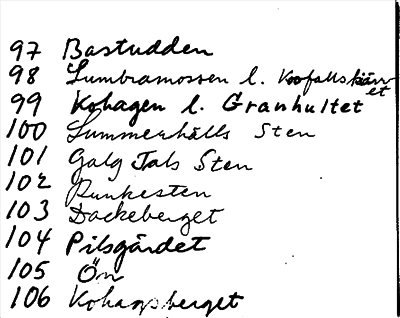 97 Bastudden
98 Lumbramossen l. Kosfallskärret
99 Kohagen l. Granhultet
100 Summerhälls Sten
101 Galg Tals Sten
102 Runkesten
103 Dackeberget
104 Pilsgärdet
105 Ön
106 Kohagsberget